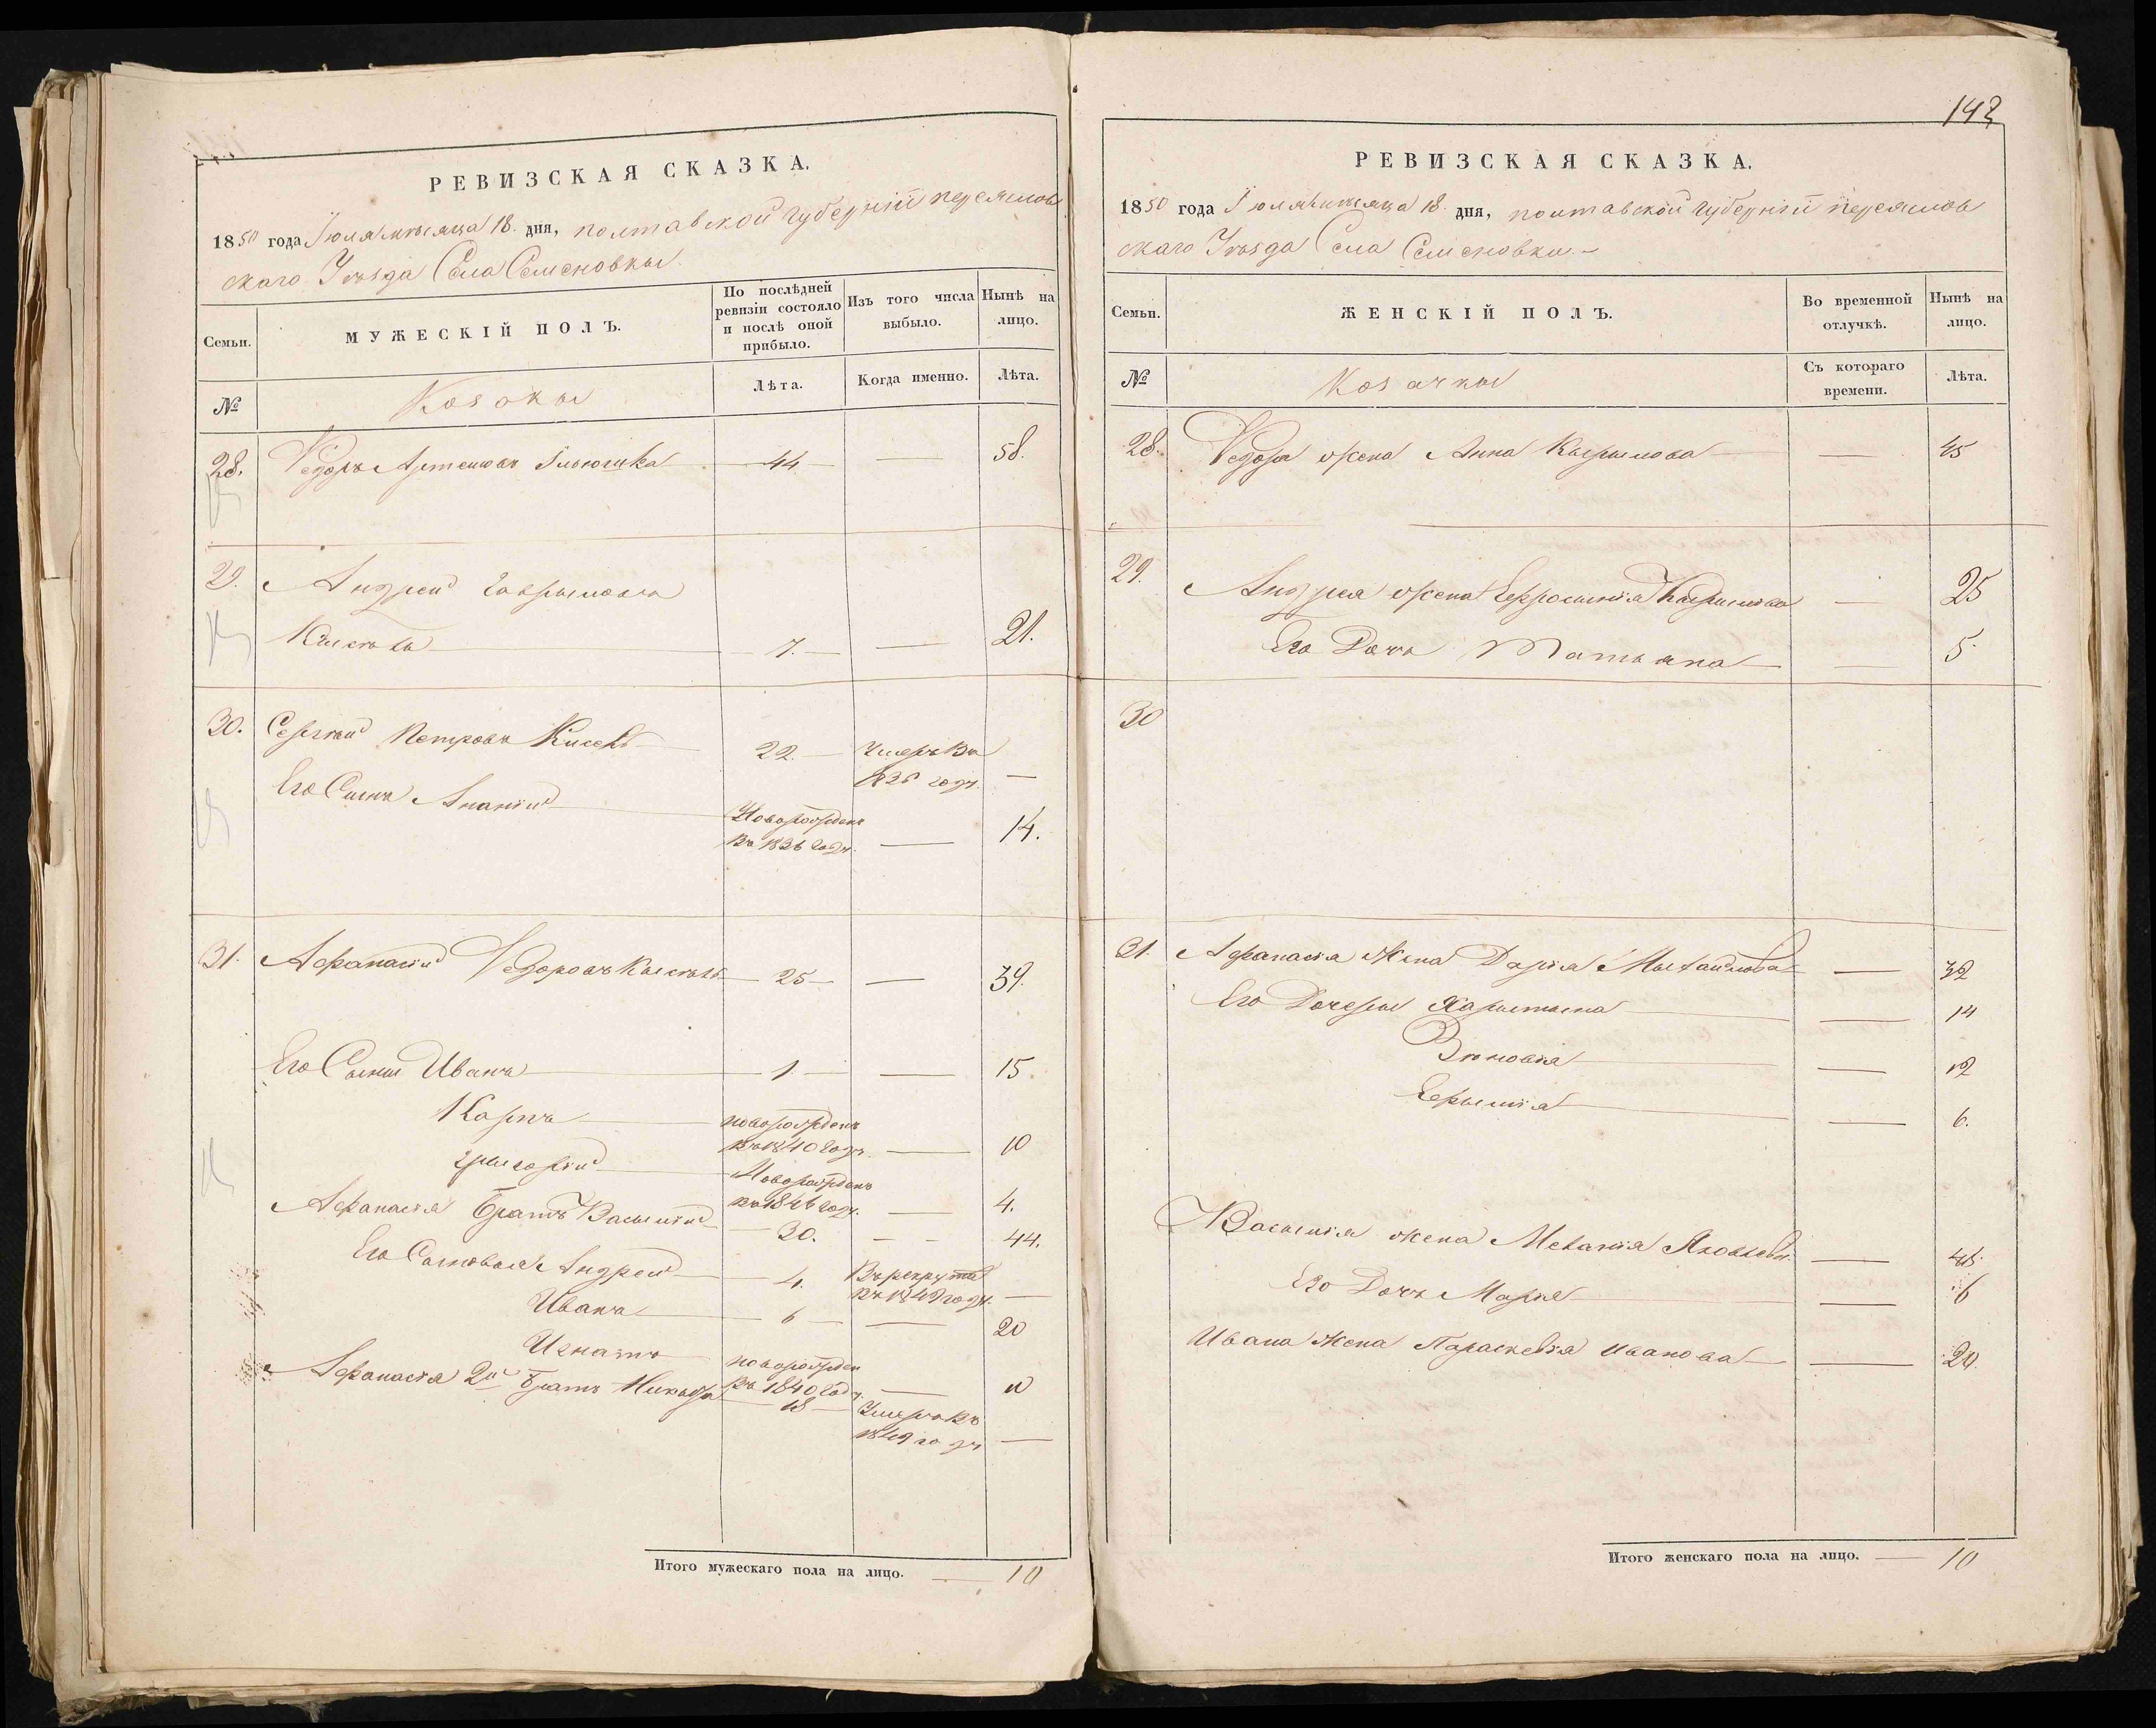 РЕВИЗСКАЯ СКАЗКА.
1850 года Іюля мѣсяца 18 дня, полтавской губерніи переяслов
скаго Уѣзда Села Семеновки.
Семьи.
МУЖЕСКІЙ ПОЛЪ.
По послѣдней ревизіи состояло и послѣ оной прибыло.
Изъ того числа выбыло.
Нынѣ на лицо.
№
Козакы
Лѣта.
Когда именно.
Лѣта.
28. Ѳедоръ Артемовъ — 44 — — 58.
29. Андрей Гаврыловъ
Кыселъ — 7. — — 21.
30. Сергѣй Петровъ Киселъ — 22. — Умеръ въ
1836 году. —
Его Сынъ Ананій — Новорожденъ
въ 1836 году. — 14.
31. Афанасій Ѳедоровъ Кыселъ — 25 — — 39.
Его Сыны Иванъ — 1. — — 15.
Карпъ — новорожденъ
въ 1840 году. — 10
Григорій — Новорожденъ
въ 1846 году. — 4.
Афанасія братъ Васылій — 30. — — 44.
Его Сыновья Андрей — 4. Въ рекруты
въ 1849 году. —
Иванъ — 6 — — 20
Игнатъ новорожден
въ 1840 году. — 10
Афанасія 2й братъ — 18 — Умеръ въ
1849 году —
Итого мужескаго пола на лицо. — 10
143
РЕВИЗСКАЯ СКАЗКА.
1850 года Іюля мѣсяца 18 дня, полтавской губерніи переяслов
скаго Уѣзда Села Семеновки. —
Семьи.
ЖЕНСКІЙ ПОЛЪ.
Во временной отлучкѣ.
Нынѣ на лицо.
№
Козачкы
Съ котораго времени.
Лѣта.
28. Ѳедора жена Анна Кырылова — — 45
29. Андрея жена Ефросынія Кырылова — 25
Его Дочь Татьяна — — 5
30
31. Афанасія Жена Дарія Мыхайлова — — 32
Его Дочеры Харытына — — 14
Зиновія — — 12
— — 6.
Васылія жена Меланія Яковлева — —
Его Дочь Марія — — 6
Ивана Жена Параскевія Иванова — — 20.
Итого женскаго пола на лицо. — 10